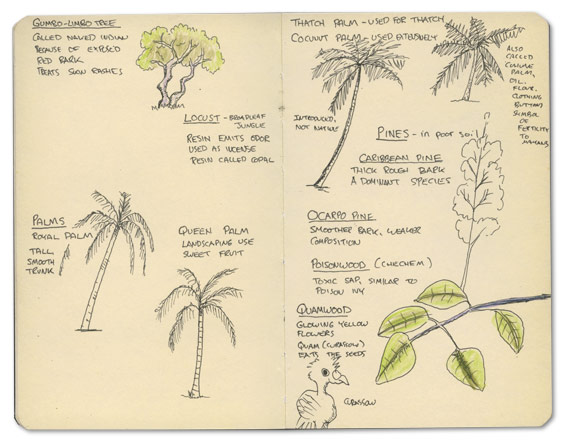 GUMBO-LIMBO TREE
CALLED NAKED INDIAN
BECAUSE OF EXPOSED
RED BARK
TREATS SKIN RASHES
LOCUST - BROADLEAF
JUNGLE
RESIN EMITS ODOR
USED AS INCENSE
RESIN CALLED COPAL
PALMS
ROYAL PALM
TALL,
SMOOTH
TRUNK
QUEEN PALM
LANDSCAPING USE
SWEET FRUIT
THATCH PALM - USED FOR THATCH
COCONUT PALM - USED EXTENSIVELY
ALSO
CALLED
COHUNE
PALM,
OIL,
FLOUR,
CLOTHING
BUTTONS
SYMBOL
OF
FERTILITY
TO
MAYANS
INTRODUCED,
NOT NATIVE
PINES - in poor soil
CARIBBEAN PINE
THICK ROUGH BARK
A DOMINANT SPECIES
OCARPO PINE
SMOOTHER BARK, WEAKER
COMPOSITION
POISONWOOD (CHECHEM)
TOXIC SAP, SIMILAR TO
POISON IVY
QUAMWOOD
GLOWING YELLOW
FLOWERS
QUAM (CURASSOW)
EATS THE SEEDS
CURASSOW